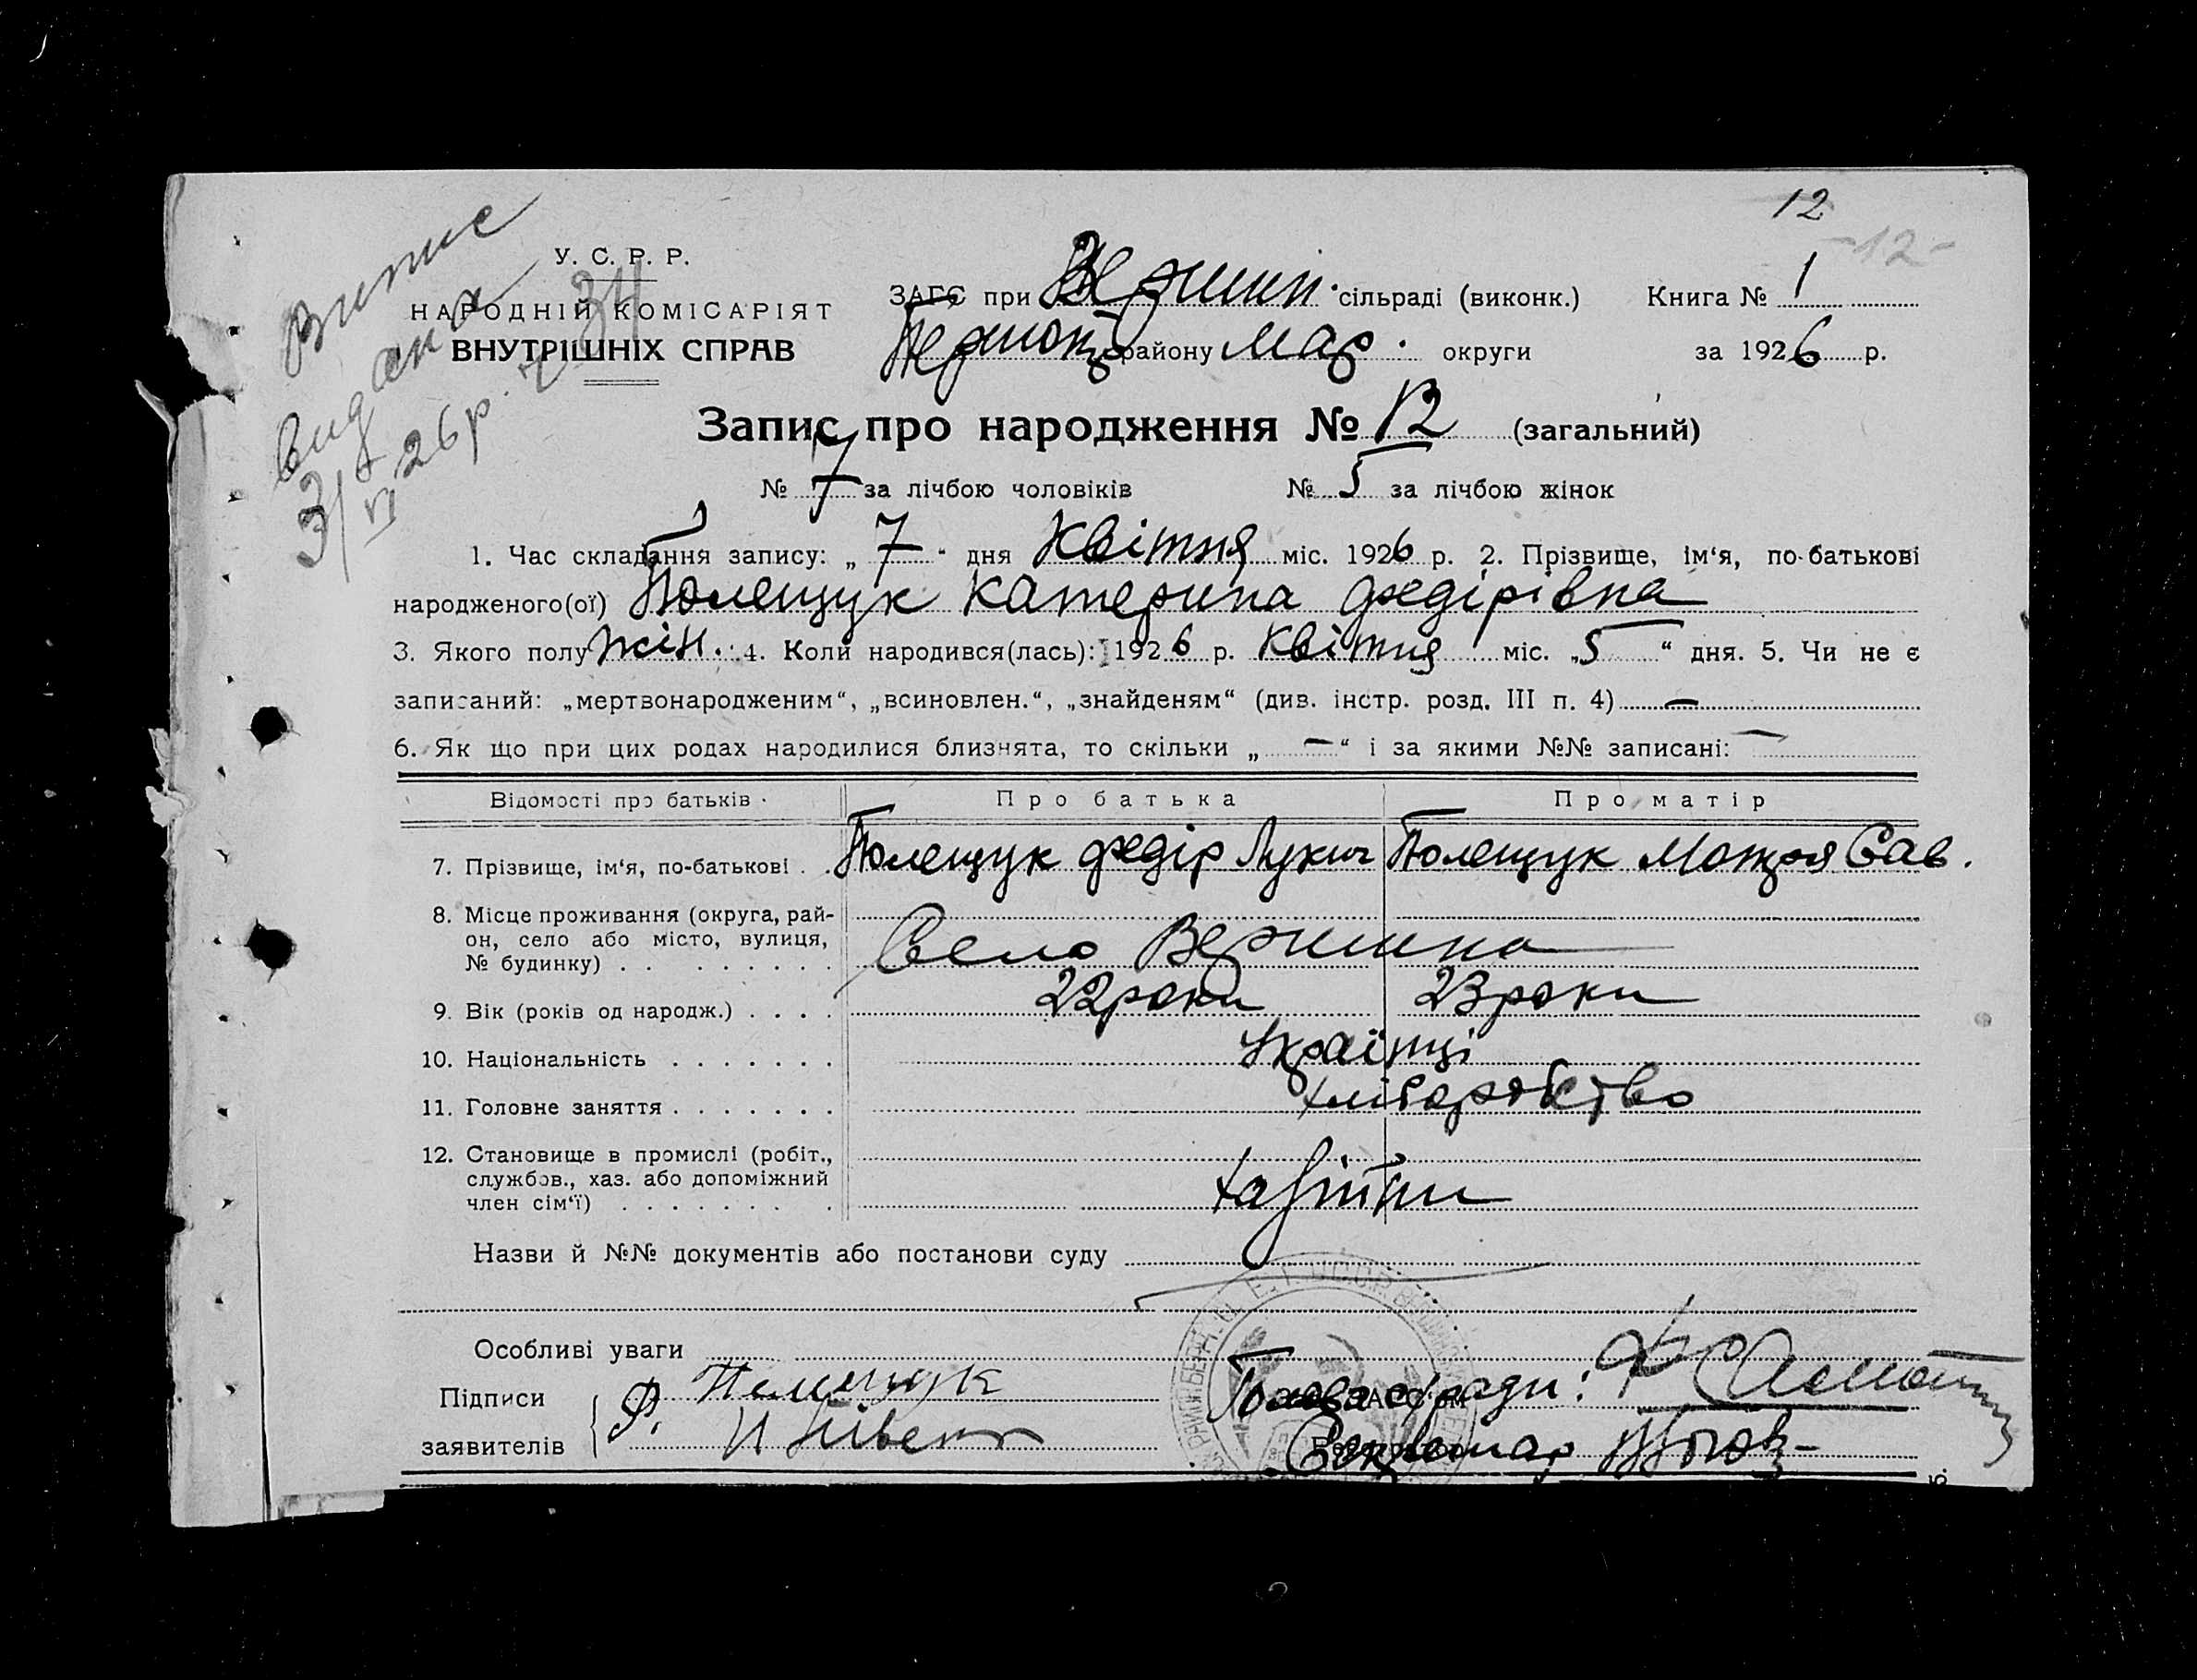 12
-12-
Витис
видана
3/VI 26 р. ч 34
У. С. Р. Р.
НАРОДНІЙ КОМІСАРІЯТ
ВНУТРІШНІХ СПРАВ
ЗАГС при Вершин. сільраді (виконк.) Книга № 1
району Мар. округи за 1926 р.
Запис про народження № 12 (загальний)
№ 7 за лічбою чоловіків № 5 за лічбою жінок
1. Час складання запису: „ 7 “ дня Квітня міс. 1926 р. 2. Прізвище, ім‘я, по-батькові
народженого(ої) Полещук Катерина Федірівна
3. Якого полу жін. 4. Коли народився(лась): 1926 р. Квітня міс. „5“ дня. 5. Чи не є
записаний: „мертвонародженим“, „всиновлен.“, „знайденям“ (див. інстр. розд. III п. 4) —
6. Як що при цих родах народилися близнята, то скільки „ — “ і за якими №№ записані: —
Відомості про батьків Про батька Про матір
7. Прізвище, ім‘я, по-батькові . . Полещук Федір Лукич Полещук Мотря Сав.
8. Місце проживання (округа, рай-
он, село або місто, вулиця,
№ будинку) . . . . . . . . Село Вершина
9. Вік (років од народж.) . . . . 22 роки 23 роки
10. Національність . . . . . . . Українці
11. Головне заняття . . . . . . . хліборобство
12. Становище в промислі (робіт.,
службов., хаз. або допоміжний
член сім‘ї) . . . . . . . .
Назви й №№ документів або постанови суду
Особливі уваги
Підписи Ф. Полещук Голова с/ради:
заявителів Секретар